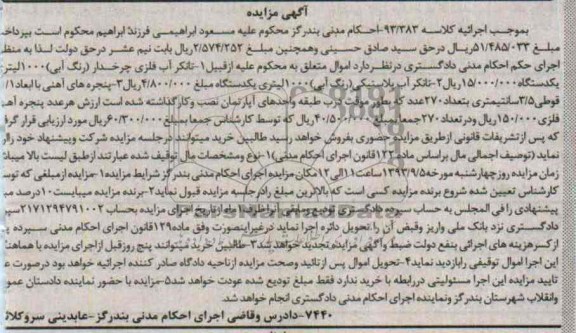 آگهی مزایده
بموجب اجرائیه کلاسه ۹۳/۳۸۳-احکام مدنی بندرگز محکوم علیه مسعود ابراهیمی فرزند ابراهیم محکوم است بپرداخت
مبلغ ۵۱/۴۸۵/۰۳۳ریال درحق سید صادق حسینی وهمچنین مبلغ ۲/۵۷۴/۲۵۲ریال بابت نیم عشر درحق دولت لذا به منظ
اجرای حکم احکام مدنی دادگستری درنظر دارد اموال متعلق به محکوم علیه ازقبیل۱-تانکر آب فلزی چرخدار (رنگ آبی)۱۰۰۰لیتر
یکدستگاه۱۵/۰۰۰/۰۰۰ریال۲-تانکر آب پلاستیکی(رنگ آبی)۱۰۰۰لیتری یکدستگاه مبلغ ۴/۸۰۰/۰۰۰ریال۳-پنجره های آهنی با ابعاد
قوطی۳/۵سانتیمتری بتعداد۲۷۰عدد که بطور موقت درب طبقه واحدهای آپارتمان نصب وکارگذاشته شده است ارزش هرعدد پنجره آه
فلزی۱۵۰/۰۰۰ریال ودرتعداد ۲۷۰جمعا مبلغ ۴۰/۵۰۰/۰۰۰ریال که توسط کارشناس جمعا بمبلغ۶۰/۳۰۰/۰۰۰ریال مورد ارزیابی قرار گرف
که پس از تشریفات قانونی ازطریق مزایده حضوری بفروش خواهد رسید طالبین خرید میتوانند درجلسه مزایده شرکت وپیشنهاد خود را
نماید (توصیف اجمالی مال براساس ماده۱۲۲قانون اجرای احکام مدنی)۱-نوع ومشخصات مال توقیف شده عبارتند ازطبق لیست بالا میباش
زمان مزایده روزچهارشنبه مورخه۱۳۹۳/۹/۵ساعت۱۱الی۱۲مکان مزایده اجرای احکام مدنی بندر گز شرایط مزایده۱-مزایده از مبلغی که توس
کارشناس تعیین شده شروع برنده مزایده کسی است که بالاترین مبلغ رادرجلسه مزایده قبول نماید۲-برنده مزایده میبایست۱۰درصد م
پیشنهادی را فی المجلس به حساب سپرده دادگستری تودیع ومابقی آنرا ظرف یکماه ازتاریخ اجرای مزایده بحساب ۲۱۷۱۲۹۴۷۹۱۰۰۲سپ
دادگستری نزد بانک ملی واریز وقبض آن را تحویل دائره اجرا نماید درغیراینصورت وفق ماده۱۲۹قانون اجرای احکام مدنی سپرده
از کسرهزینه های اجرائی بنفع دولت ضبط وآگهی مزایده تجدید خواهد شد۳-طالبین خرید میتوانند پنج روزقبل ازاجرای مزایده با هماهن
این اجرا اموال توقیفی رابازدید نماید۴-تحویل اموال پس ازتائید وصحت مزایده ازناحیه دادگاه صادر کننده اجرائیه خواهد بود درصورت
تایید مزایده این اجرا مسئولیتی دررابطه با خرید ندارد فقط مبلغ تودیع شده عودت خواهد شد۵-مزایده با حضور نماینده دادستان عمو
وانقلاب شهرستان بندرگز ونماینده اجرای احکام مدنی دادگستری انجام خواهد شد.
۷۴۴۰-دادرس وقاضی اجرای احکام مدنی بندرگز-عابدینی سروکلائ